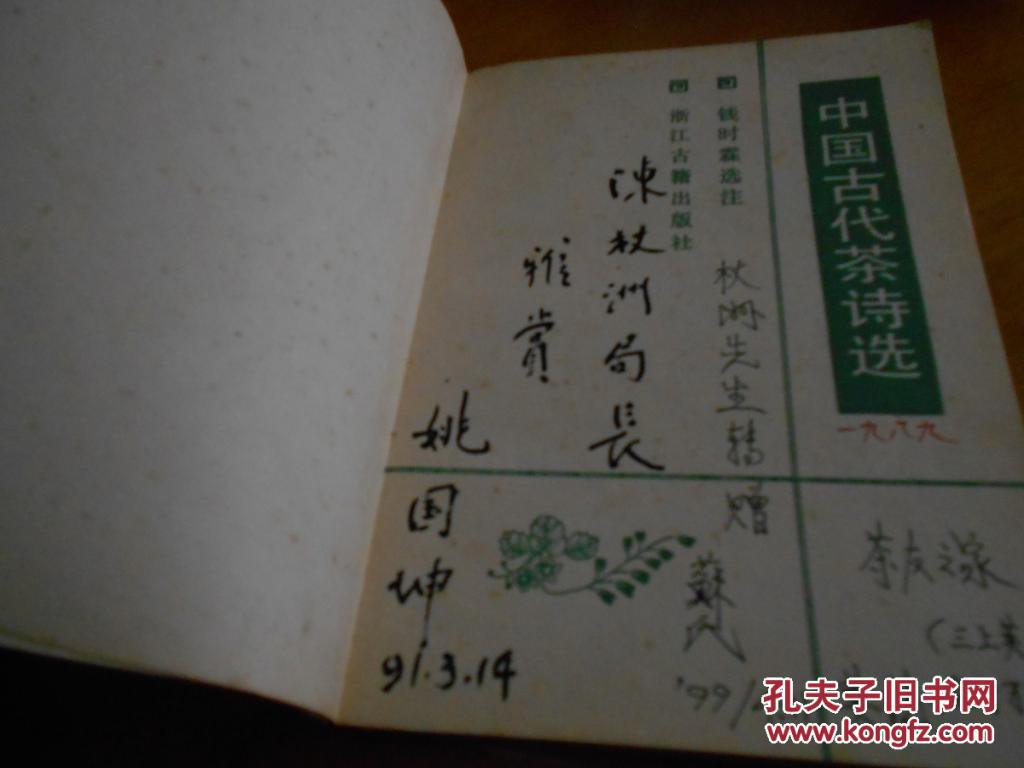 中国古代茶诗选
一九八九
钱时霖选注
浙江古籍出版社
陈杖洲局長
雅赏
姚国坤
91.3.14
杖洲先生转赠
蘇民
'99/
茶友之家
(三上美
孔夫子旧书网
www.kongfz.com